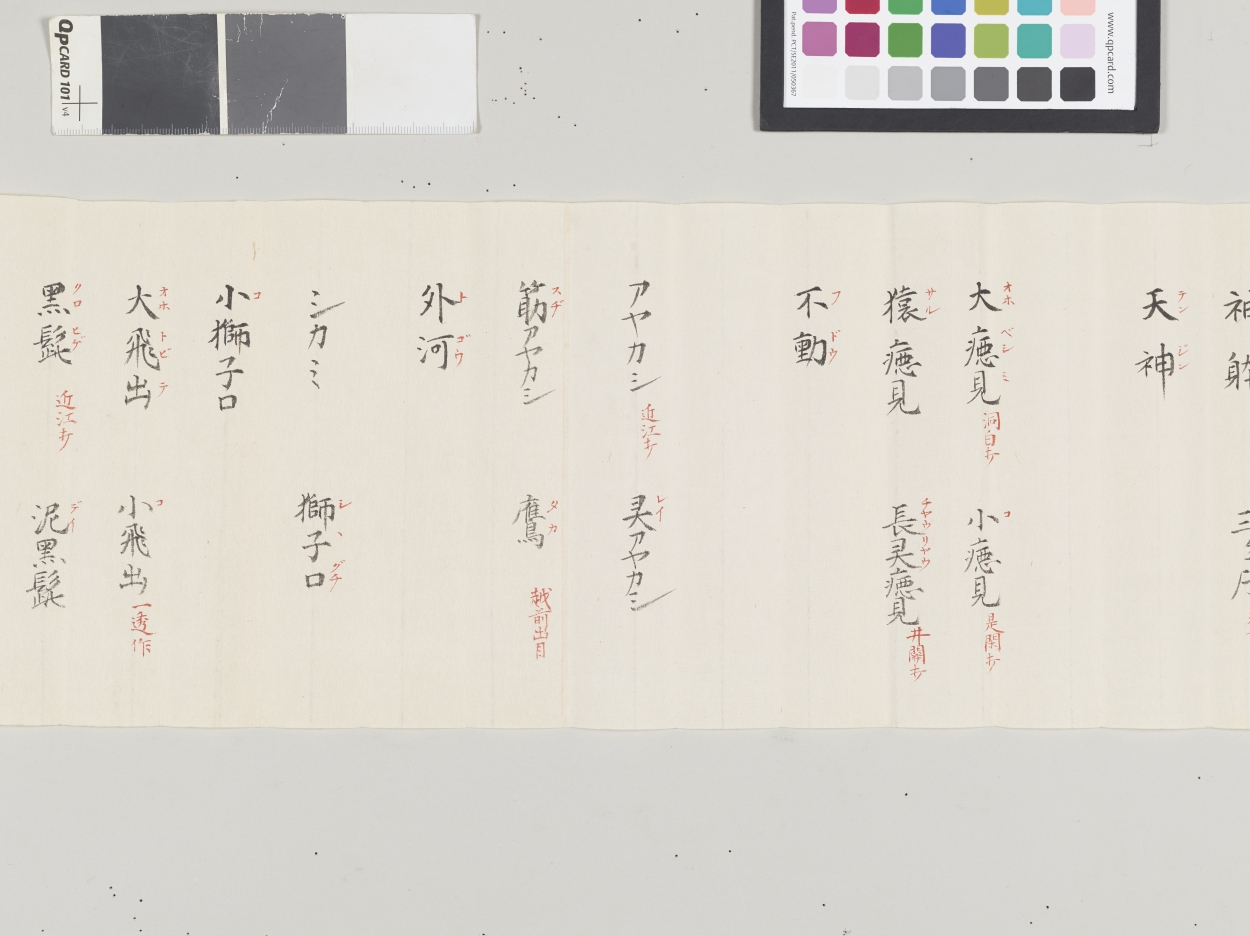 QPCARD 101 v4
www.qpcard.com
Pat.pend. PCT/SE2011/050367
天神
テンジン
大癋見 洞白打
オホベシミ
小癋見 是閑打
コ
猿癋見
サル
長灵癋見 井關打
チヤウリヤウ
不動
フドウ
アヤカシ 近江打
灵アヤカシ
レイ
筋アヤカシ
スヂ
鷹 越前出目
タカ
外河
トゴウ
シカミ
獅子口
シヽグチ
小獅子口
コ
大飛出
オホトビデ
小飛出 一透作
コ
黒髭 近江打
クロヒゲ
泥黒髭
デイ